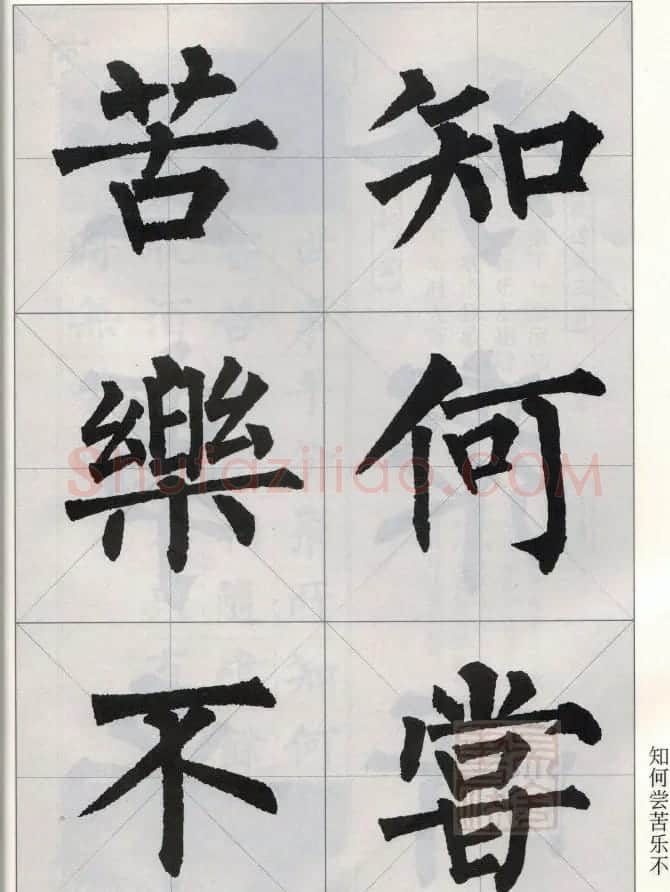 知何嘗
苦樂不
知何尝苦乐不
Shufaziliao.COM